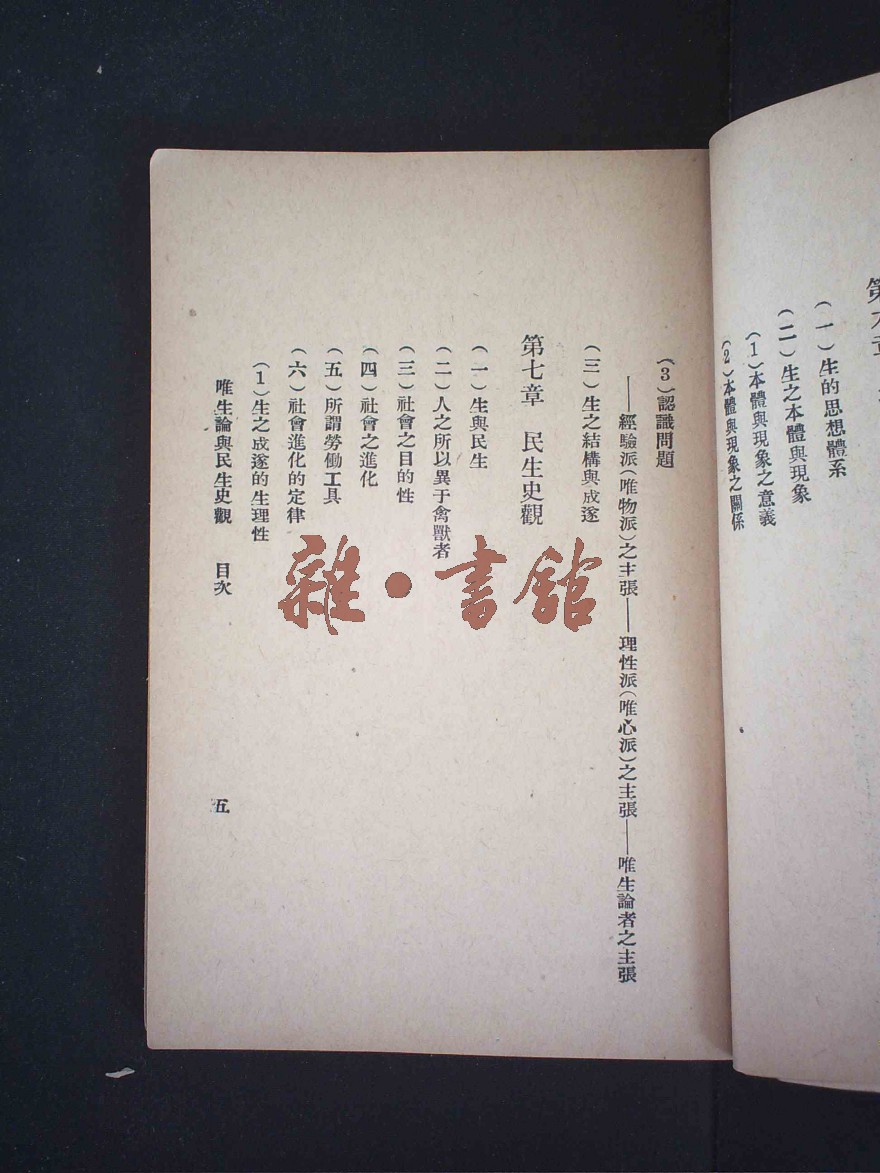 (一)生的思想體系
(二)生之本體與現象
(1)本體與現象之意義
(2)本體與現象之關係
(3)認識問題
——經驗派(唯物派)之主張——理性派(唯心派)之主張——唯生論者之主張
(三)生之結構與成遂
第七章 民生史觀
(一)生與民生
(二)人之所以異于禽獸者
(三)社會之目的性
(四)社會之進化
(五)所謂勞働工具
(六)社會進化的定律
(1)生之成遂的生理性
唯生論與民生史觀 目次
五
雜·書館